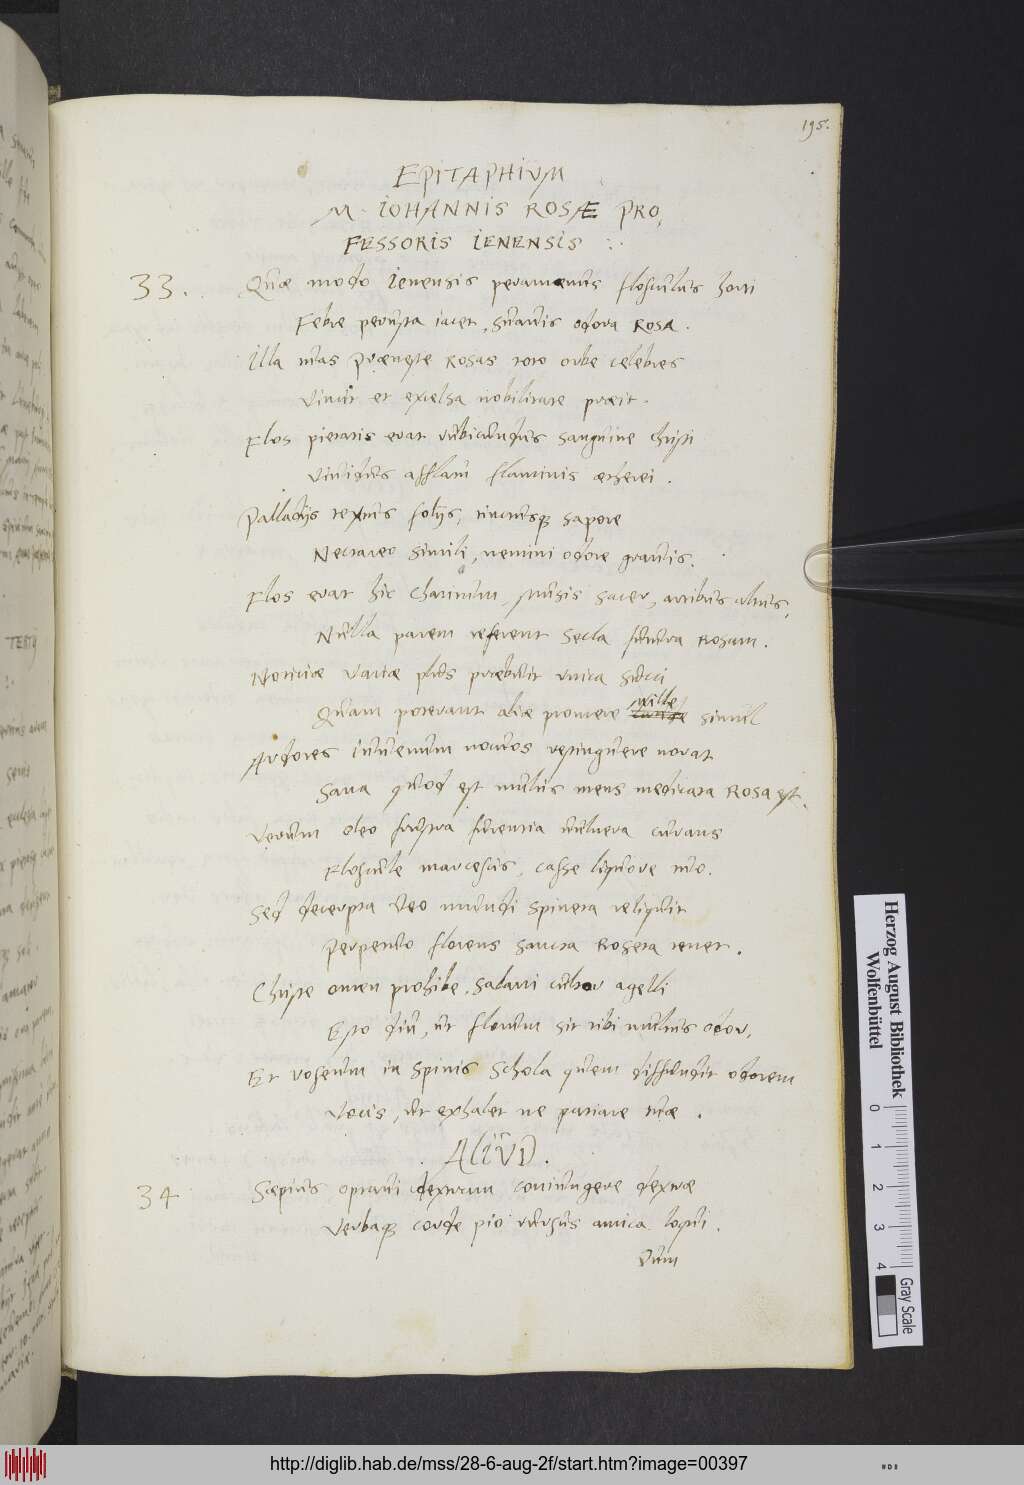 195.
EPITAPHIVM
M. IOHANNIS ROSÆ PRO,
FESSORIS IENENSIS
33. Quæ modo Ienensis peramœnus flosculus horti
Febre perusta iacet, suavis odora ROSA.
Illa tuas Præneste ROSAS toto orbe celebres
Vincit et excelsa nobilitate præit.
Flos pietatis erat rubicundus sanguine Christi
Vividus afflatu flaminis ætherei.
Palladijs textus folijs, tinctusq; sapore
Nectareo simili, nemini odore gravis.
Flos erat hic Charitum, Musis sacer, artibus altus,
Nulla parem referent secla futura ROSAM.
Notitiæ variæ plus præbuit unica succi
Quam poterant aliæ promere mille simul
Ardores iuvenum nocuos restinguere norat
Sana quod est multis mens medicata ROSA est.
Verum oleo frustra furentia vulnera curans
Floscule marcescis, casse liquore tuo.
Sed decerpta Deo mundi spineta reliquit
Perpetuo florens sancta Roseta tenet.
Christe omen prohibe, Salani cultor agelli
Esto diu, ut florum sit tibi multus odor,
Et rosetum in spinis Schola quem diffundit odorem
Vocis, ut exhalet ne patiare tuæ.
ALIVD.
34 Sæpius optavi dextram coniungere dextræ
Verbaq; corde pio rursus amica loqui.
Dum
TERTIJ
Herzog August Bibliothek
Wolfenbüttel
0 1 2 3 4
Gray Scale
http://diglib.hab.de/mss/28-6-aug-2f/start.htm?image=00397